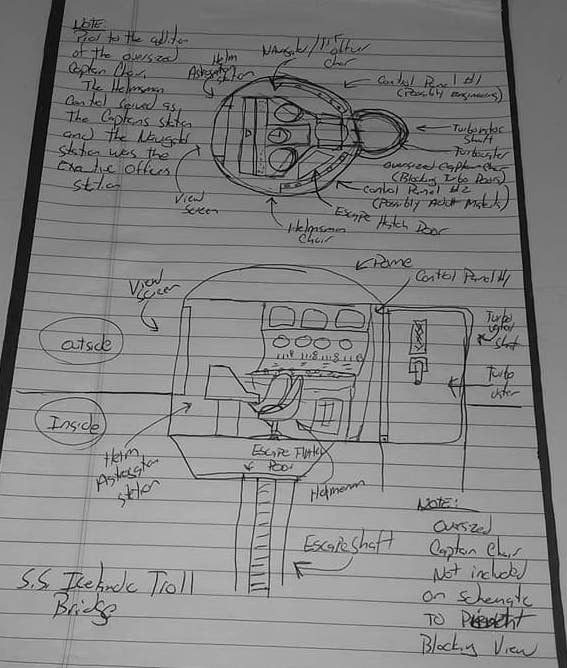 NOTE:
Prior to the addition
of the oversized
Captain Chair,
The Helmsman
Control served as
The Captains station
and the Navigator
station was the
Executive Officers
station
Helm
Station
Navigator/
Chair
Control Panel #1
(Possibly Engineering)
Turbolator
Shaft
Turbolater
oversized Captain Chair
(Blocking Turbo Doors)
Control Panel #2
(Possibly
Escape Hatch Door
Helmsman
Chair
View
Screen
Dome
Control Panel #1
View
Screen
outside
Inside
Turbo
Shaft
Turbo
Helm
station
Escape Hatch
Door
Helmsman
Escape Shaft
S.S. Icelandic Troll
Bridge
NOTE:
Oversized
Captain Chair
Not included
on schematic
To
Blocking View